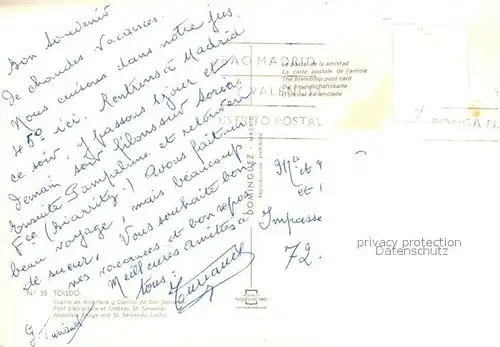 Bon Souvenir
de chaudes vacances.
Nous cuisons dans notre jus.
45° ici. Rentrons à Madrid
ce soir. Y passons 1 jour et
demain soir filons sur Soria,
ensuite Pampelune et retour en
Fce (Biarritz.) Avons fait un
beau voyage, mais beaucoup
de sueur. Vous souhaite bon-
nes vacances et bon repos
Meilleures amitiés à
tous.
Nº 33 TOLEDO.
Puente de Alcántara y Castillo de San Servando.
Pont d'Alcántara et Château St. Servando.
Alcantara Bridge and St. Servando Castle.
DOMINGUEZ - MADRID
Reproducción prohibida
MADRID
POSTAL
La postal de la amistad
La carte postale de l'amitié
The friendship post card
Die Freundschaftskarte
PONGA N.
Impasse
72.
privacy protection